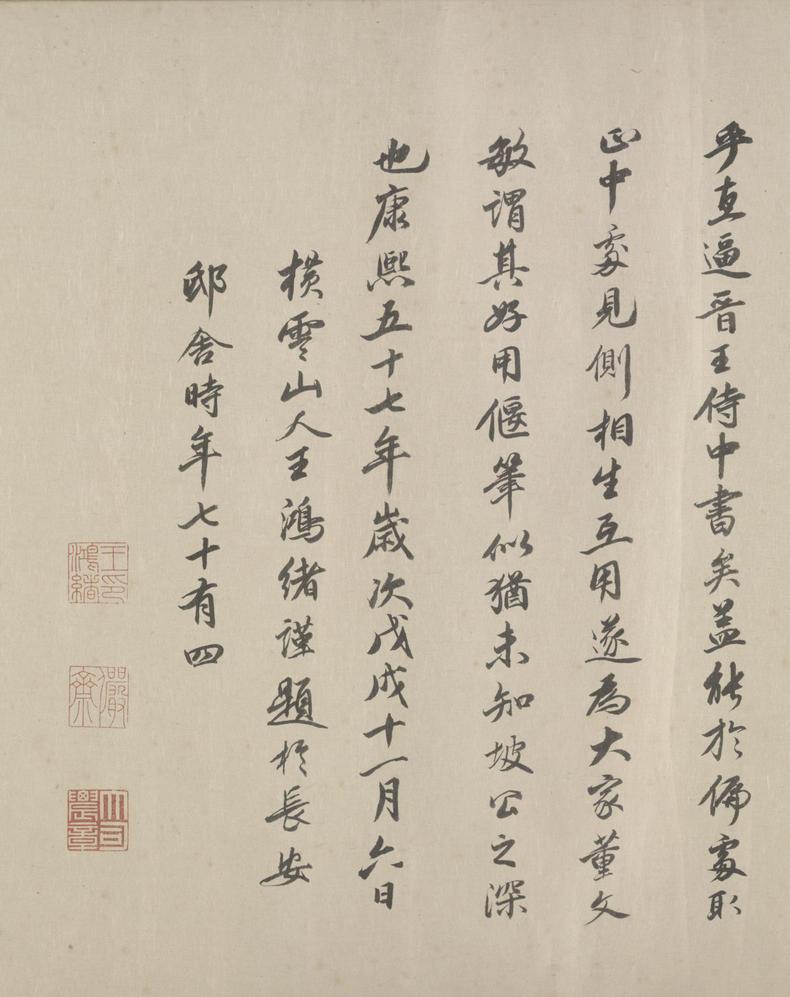 乎直逼晉王侍中書矣葢能於偏處取
正中處見側相生互用遂為大家董文
敏謂其好用偃筆似猶未知坡公之深
也康熙五十七年歲次戊戌十一月六日
橫雲山人王鴻緒謹題於長安
邸舍時年七十有四
王鴻緒印
儼齋
大司農章